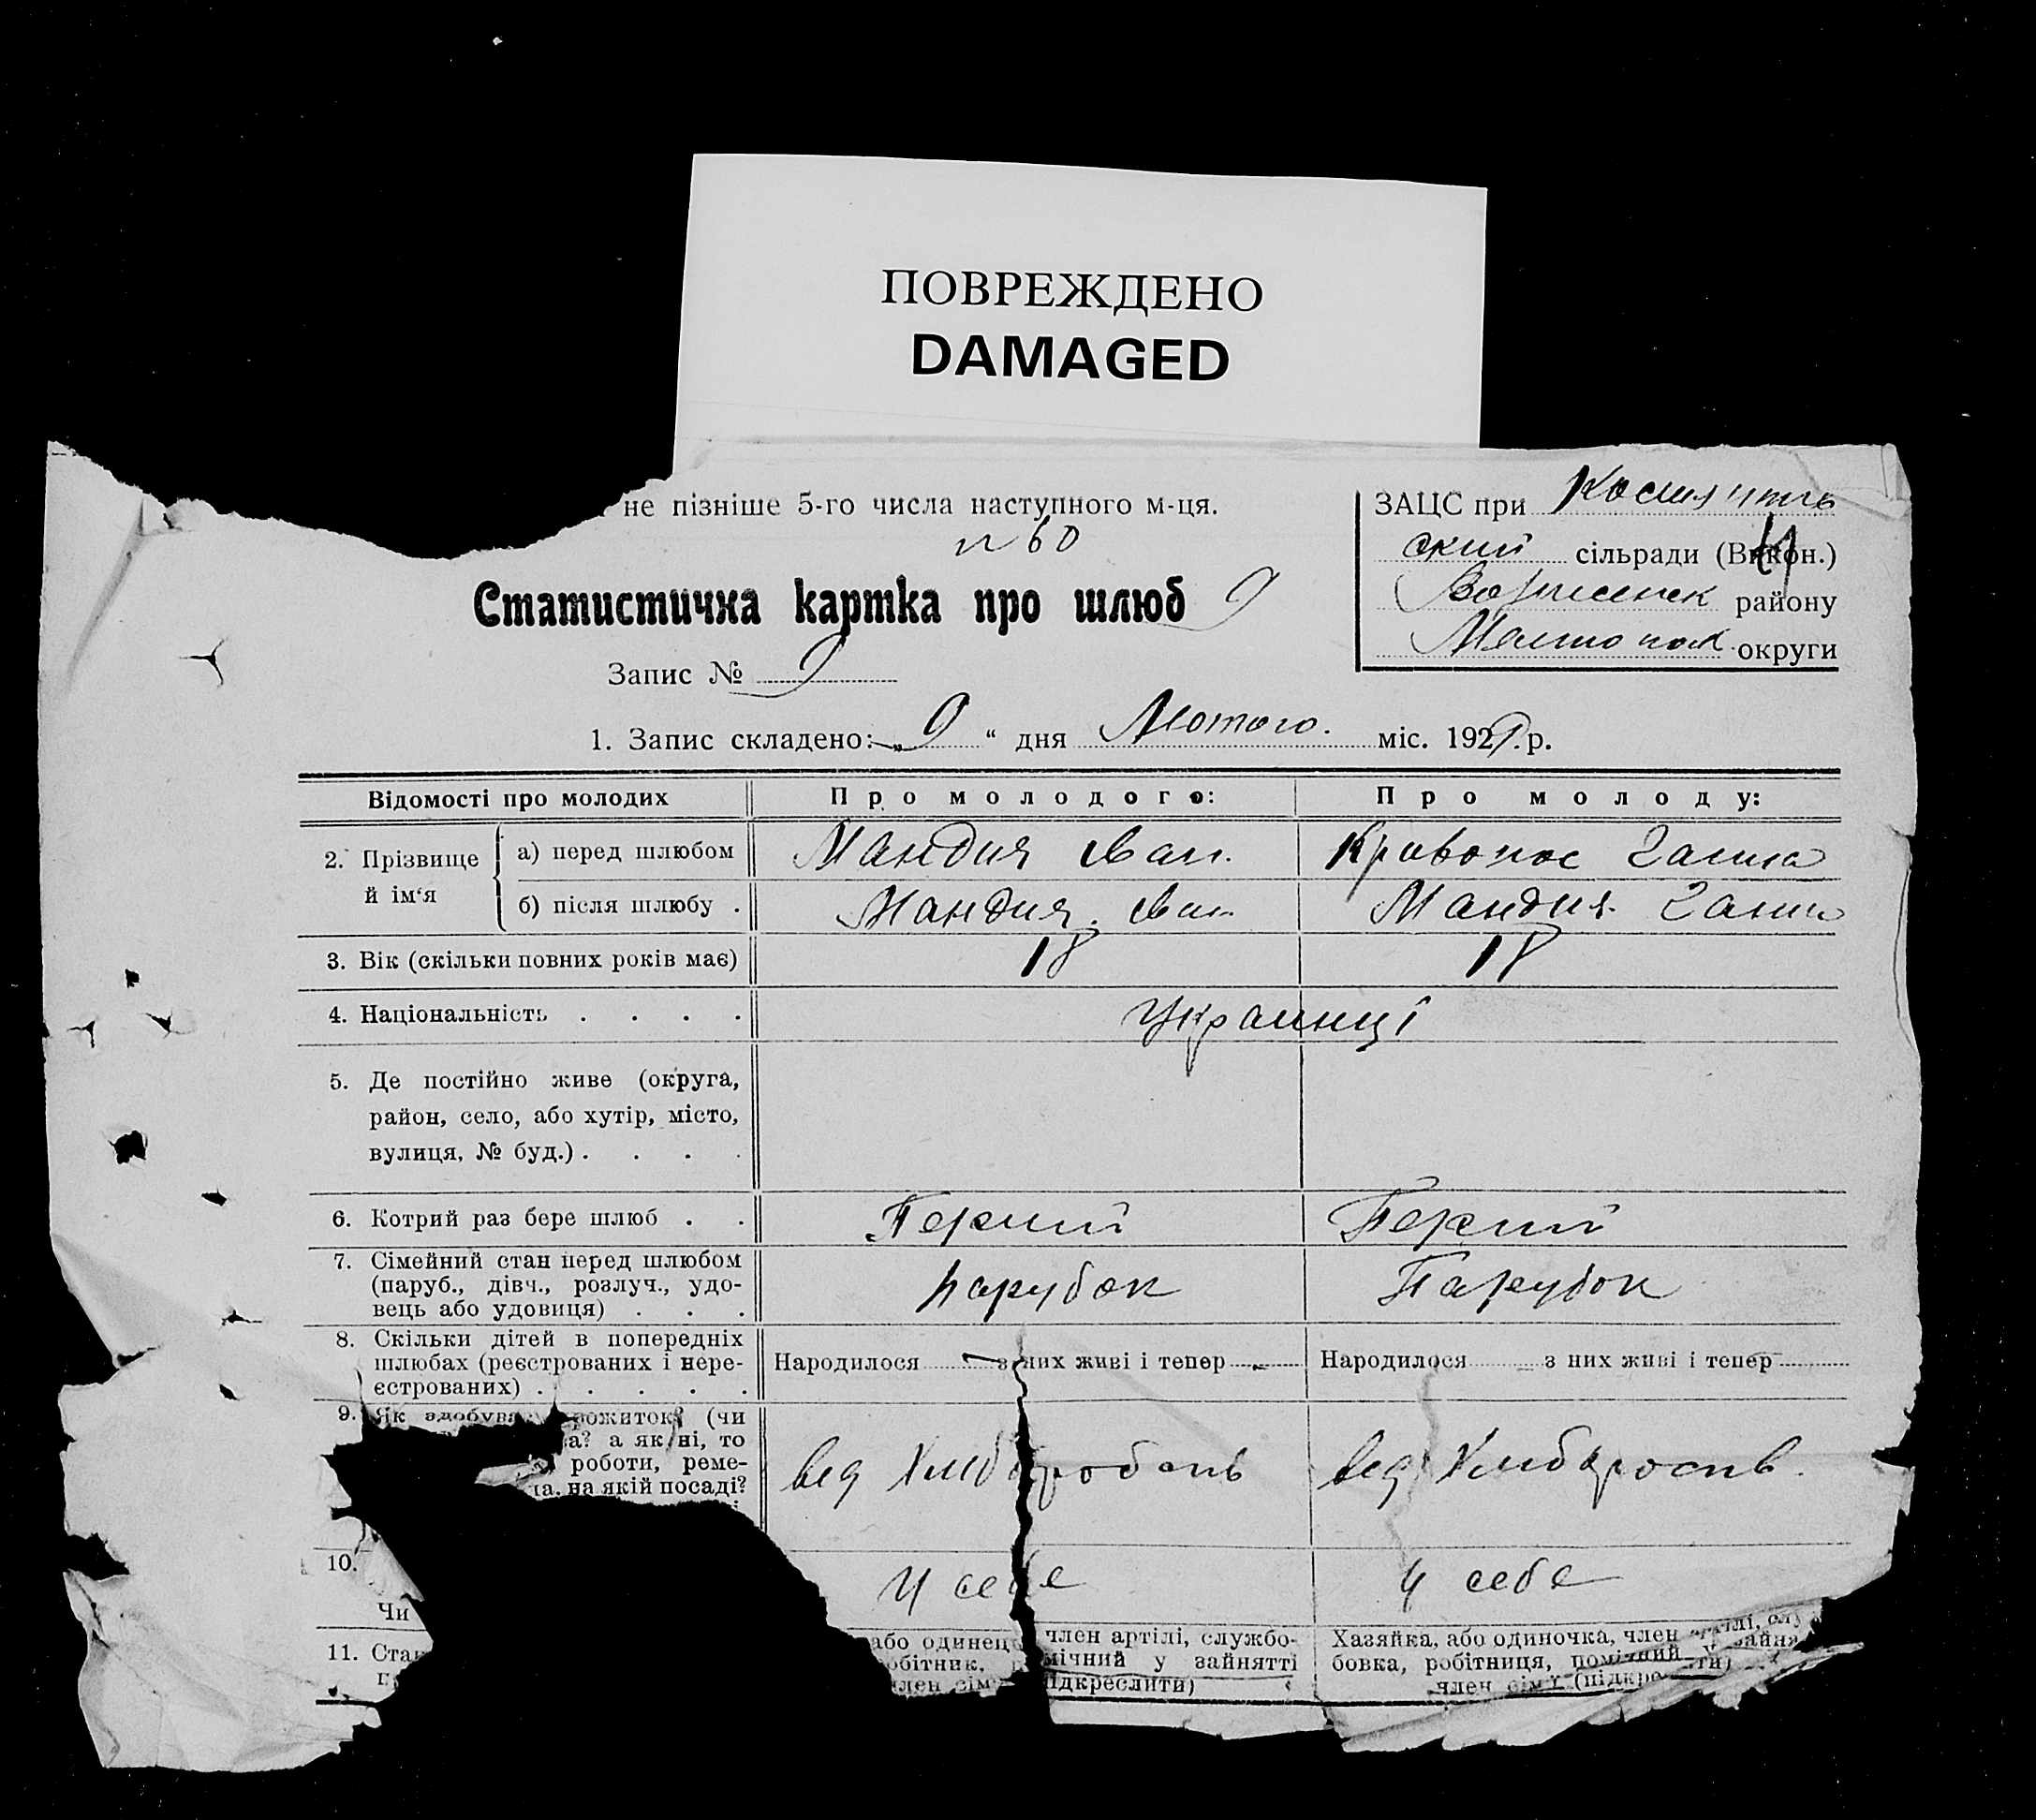 ПОВРЕЖДЕНО
DAMAGED
не пізніше 5-го числа наступного м-ця.
№ 60
ЗАЦС при
ский сільради (Викон.)
району
округи
Статистична картка про шлюб 9
Запис № 9
1. Запис складено: „ 9 “ дня Лютого. міс. 192 р.
Відомості про молодих Про молодого: Про молоду:
2. Прізвище й ім‘я
а) перед шлюбом Мандия Иван. Кривонос Ганна
б) після шлюбу . Мандия. Иван Мандия. Ганна
3. Вік (скільки повних років має) 18 18
4. Національність . . . . Украинці
5. Де постійно живе (округа,
район, село, або хутір, місто,
вулиця, № буд.) . . . .
6. Котрий раз бере шлюб . . Перший Перший
7. Сімейний стан перед шлюбом
(паруб., дівч., розлуч., удо-
вець або удовиця) . . . Парубок Парубок
8. Скільки дітей в попередніх
шлюбах (реєстрованих і нере-
єстрованих) . . . . . Народилося – з них живі і тепер – Народилося – з них живі і тепер
9. Як здобува рожиток? (чи
ва? а як ні, то
роботи, реме-
ла, на якій посаді?
від від
10. У себе у себе
Чи
11. Ста
або одинець член артілі, службо- Хазяйка, або одиночка, член
обітник, мічний у зайнятті бовка, робітниця, помічний у зайня
член сім ідкреслити) член сім'ї (підкре ти)